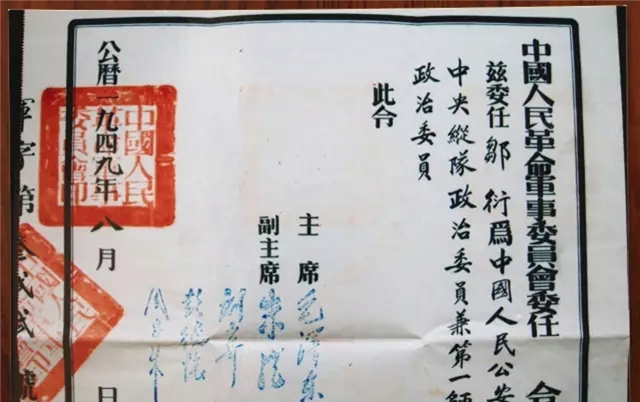 中國人民革命軍事委員會委任令
茲委任鄒衍爲中國人民公安
中央縱隊政治委員兼第一師
政治委員
此令
主席毛澤东
副主席朱德
劉少奇
周恩来
彭德怀
公曆一九四九年八月日
中國人民革命軍事委員會印
軍字第叁貳貳號